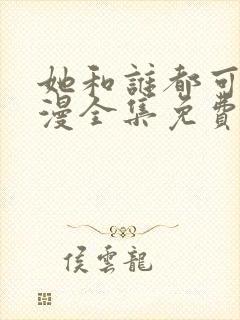 她和誰都可
漫全集免費
侯雲龍